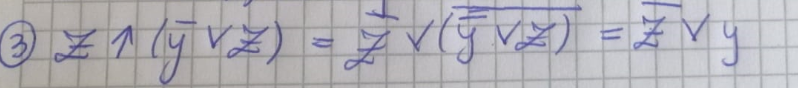 ③ z ↑ (y̅ ∨ z) = z̅ ∨ (\overline{y̅ ∨ z}) = z̅ ∨ y